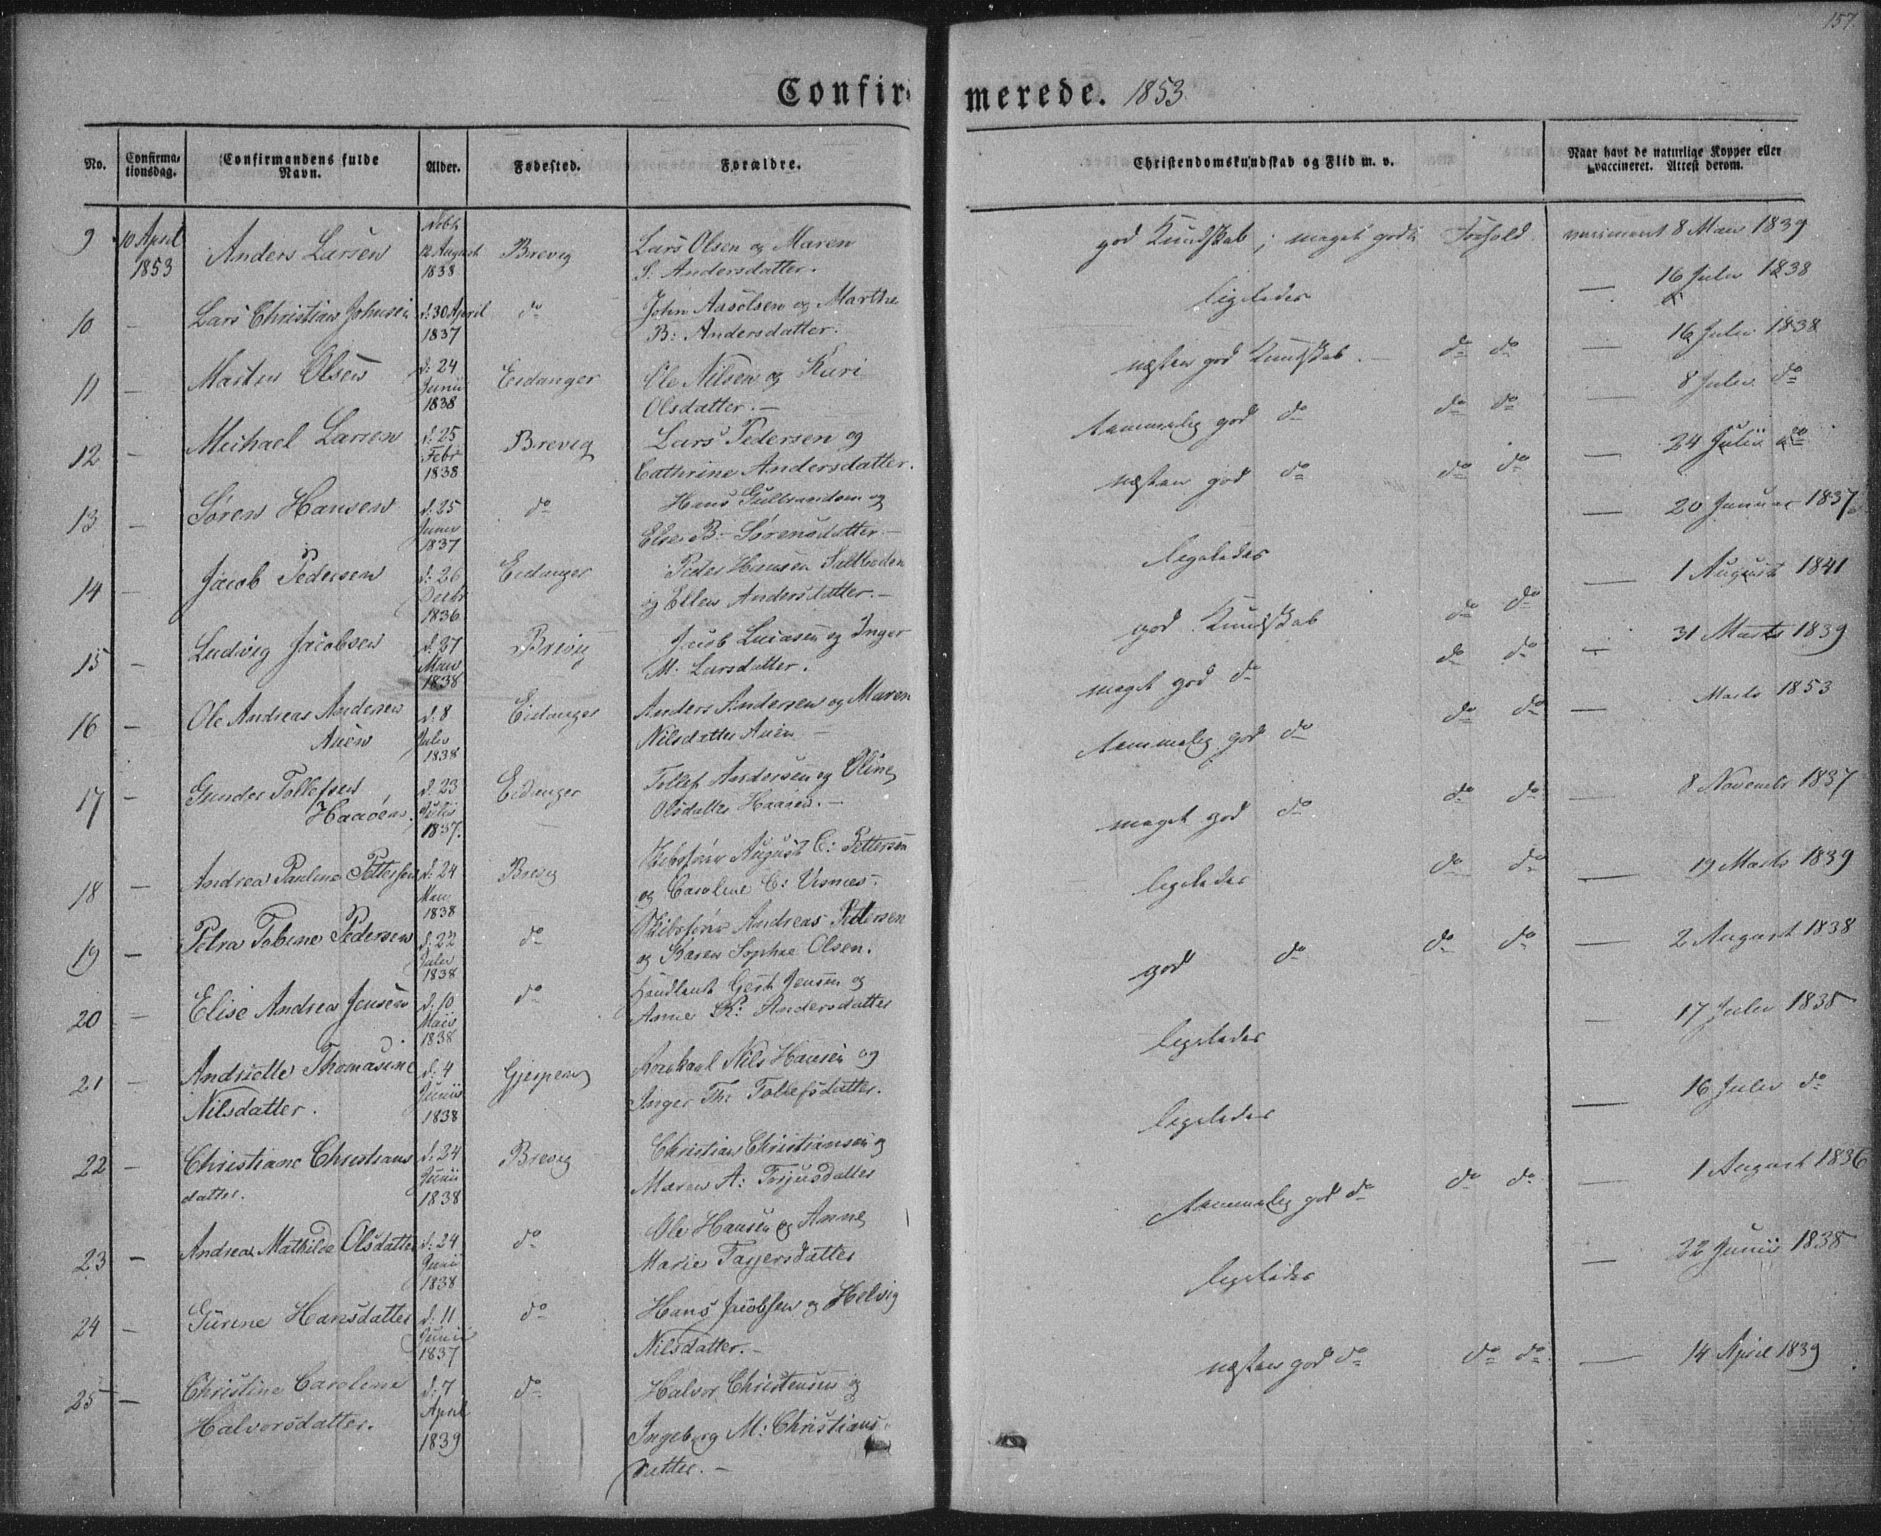 157.
Confirmerede. 1853
No. Confirmationsdag. Confirmandens fulde Navn. Alder. Fødested. Forældre. Christendomskundskab og Flid m. v. Naar havt de naturlige Kopper eller vaccineret. Attest derom.
9 10 April 1853 Anders Larsen 12 August 1838 Brevig Lars Olsen og Maren
Andersdatter. god Kundskab; meget godt Forhold 8 Mai 1839
10 — Lars Christian Johnsen d. 30 April 1837 do John Aasolsen og Marthe
B: Andersdatter. ligeledes — 16 Julii 1838
11 — Marten Olsen d: 24 Junii 1838 Eidanger Ole Nilsen og Kari
Olsdatter. — næsten god Kundskab. — do do — 16 Julii 1838
12 — Michael Larsen d: 25 Febr 1838 Brevig Lars Pedersen og
Cathrine Andersdatter. temmelig god do do do — 8 Julii do
13 — Søren Hansen d: 25 1837 do Hans Gulbrandsen og
Else B. Sørensdatter — næsten god do do do — 24 Julii do
14 — Jacob Pedersen d: 26 Decbr 1836 Eidanger Peder Hansen Saltboden
og Ellen Andersdatter. — ligeledes — 20 Januar 1837
15 — Ludvig Jacobsen d. 27 Mai 1838 Brevig Jacob Lucasen og Inger
M. Larsdatter. god Kundskab do do — 1 August 1841
16 — Ole Andreas Andersen Auen d. 8 Julii 1838 Eidanger Anders Andersen og Maren
Nilsdatter Auen — meget god do do do — 31 Marts 1839
17 — Gunder Tollefsen Haaøen. d. 23 Julii 1837. Eidanger Tollef Andersen og Oline
Olsdatter Haaøen. — temmelig god do do do — Marts 1853
18 — Andrea Pauline Pettersen d: 24 Mai 1838 Brevig Skibsfører August C: Pettersen
og Caroline C: Visnes. meget god do do do — 8 Novembr 1837
19 — Petra Tobine Pedersen d: 22 Julii 1838 do Skibsfører Andreas Petersen
og Karen Sophie Olsen. ligeledes do do — 19 Marts 1839
20 — Elise Andrea Jensen d. 10 Maii 1838 do Handlant Gert Jensen og
Anne K: Andersdatter god do do do — 2 August 1838
21 — Andrielle Thomasine Nilsdatter. d: 4 Junii 1838 Gjerpen Nils Hansen og
Inger Th: Tollefsdatter. ligeledes — 17 Julii 1838
22 — Christiane Christiansdatter. d. 24 Junii 1838 Brevig Christian Christiansen og
Maren A: Terjusdatter ligeledes — 16 Julii do
23 — Andrea Mathilde Olsdatter d: 24 Junii 1838 do Ole Hansen og Anne
Marie Tarjersdatter temmelig god do do do — 1 August 1836
24 — Gurine Hansdatter d. 11 Junii 1837 do Hans Jacobsen og Helvig
Nilsdatter. — ligeledes — 22 Junii 1838
25 — Christine Caroline Halvorsdatter. d: 7 April 1839 do Halvor Christensen og
Ingeborg M: Christiansdatter. — næsten god do do do — 14 April 1839